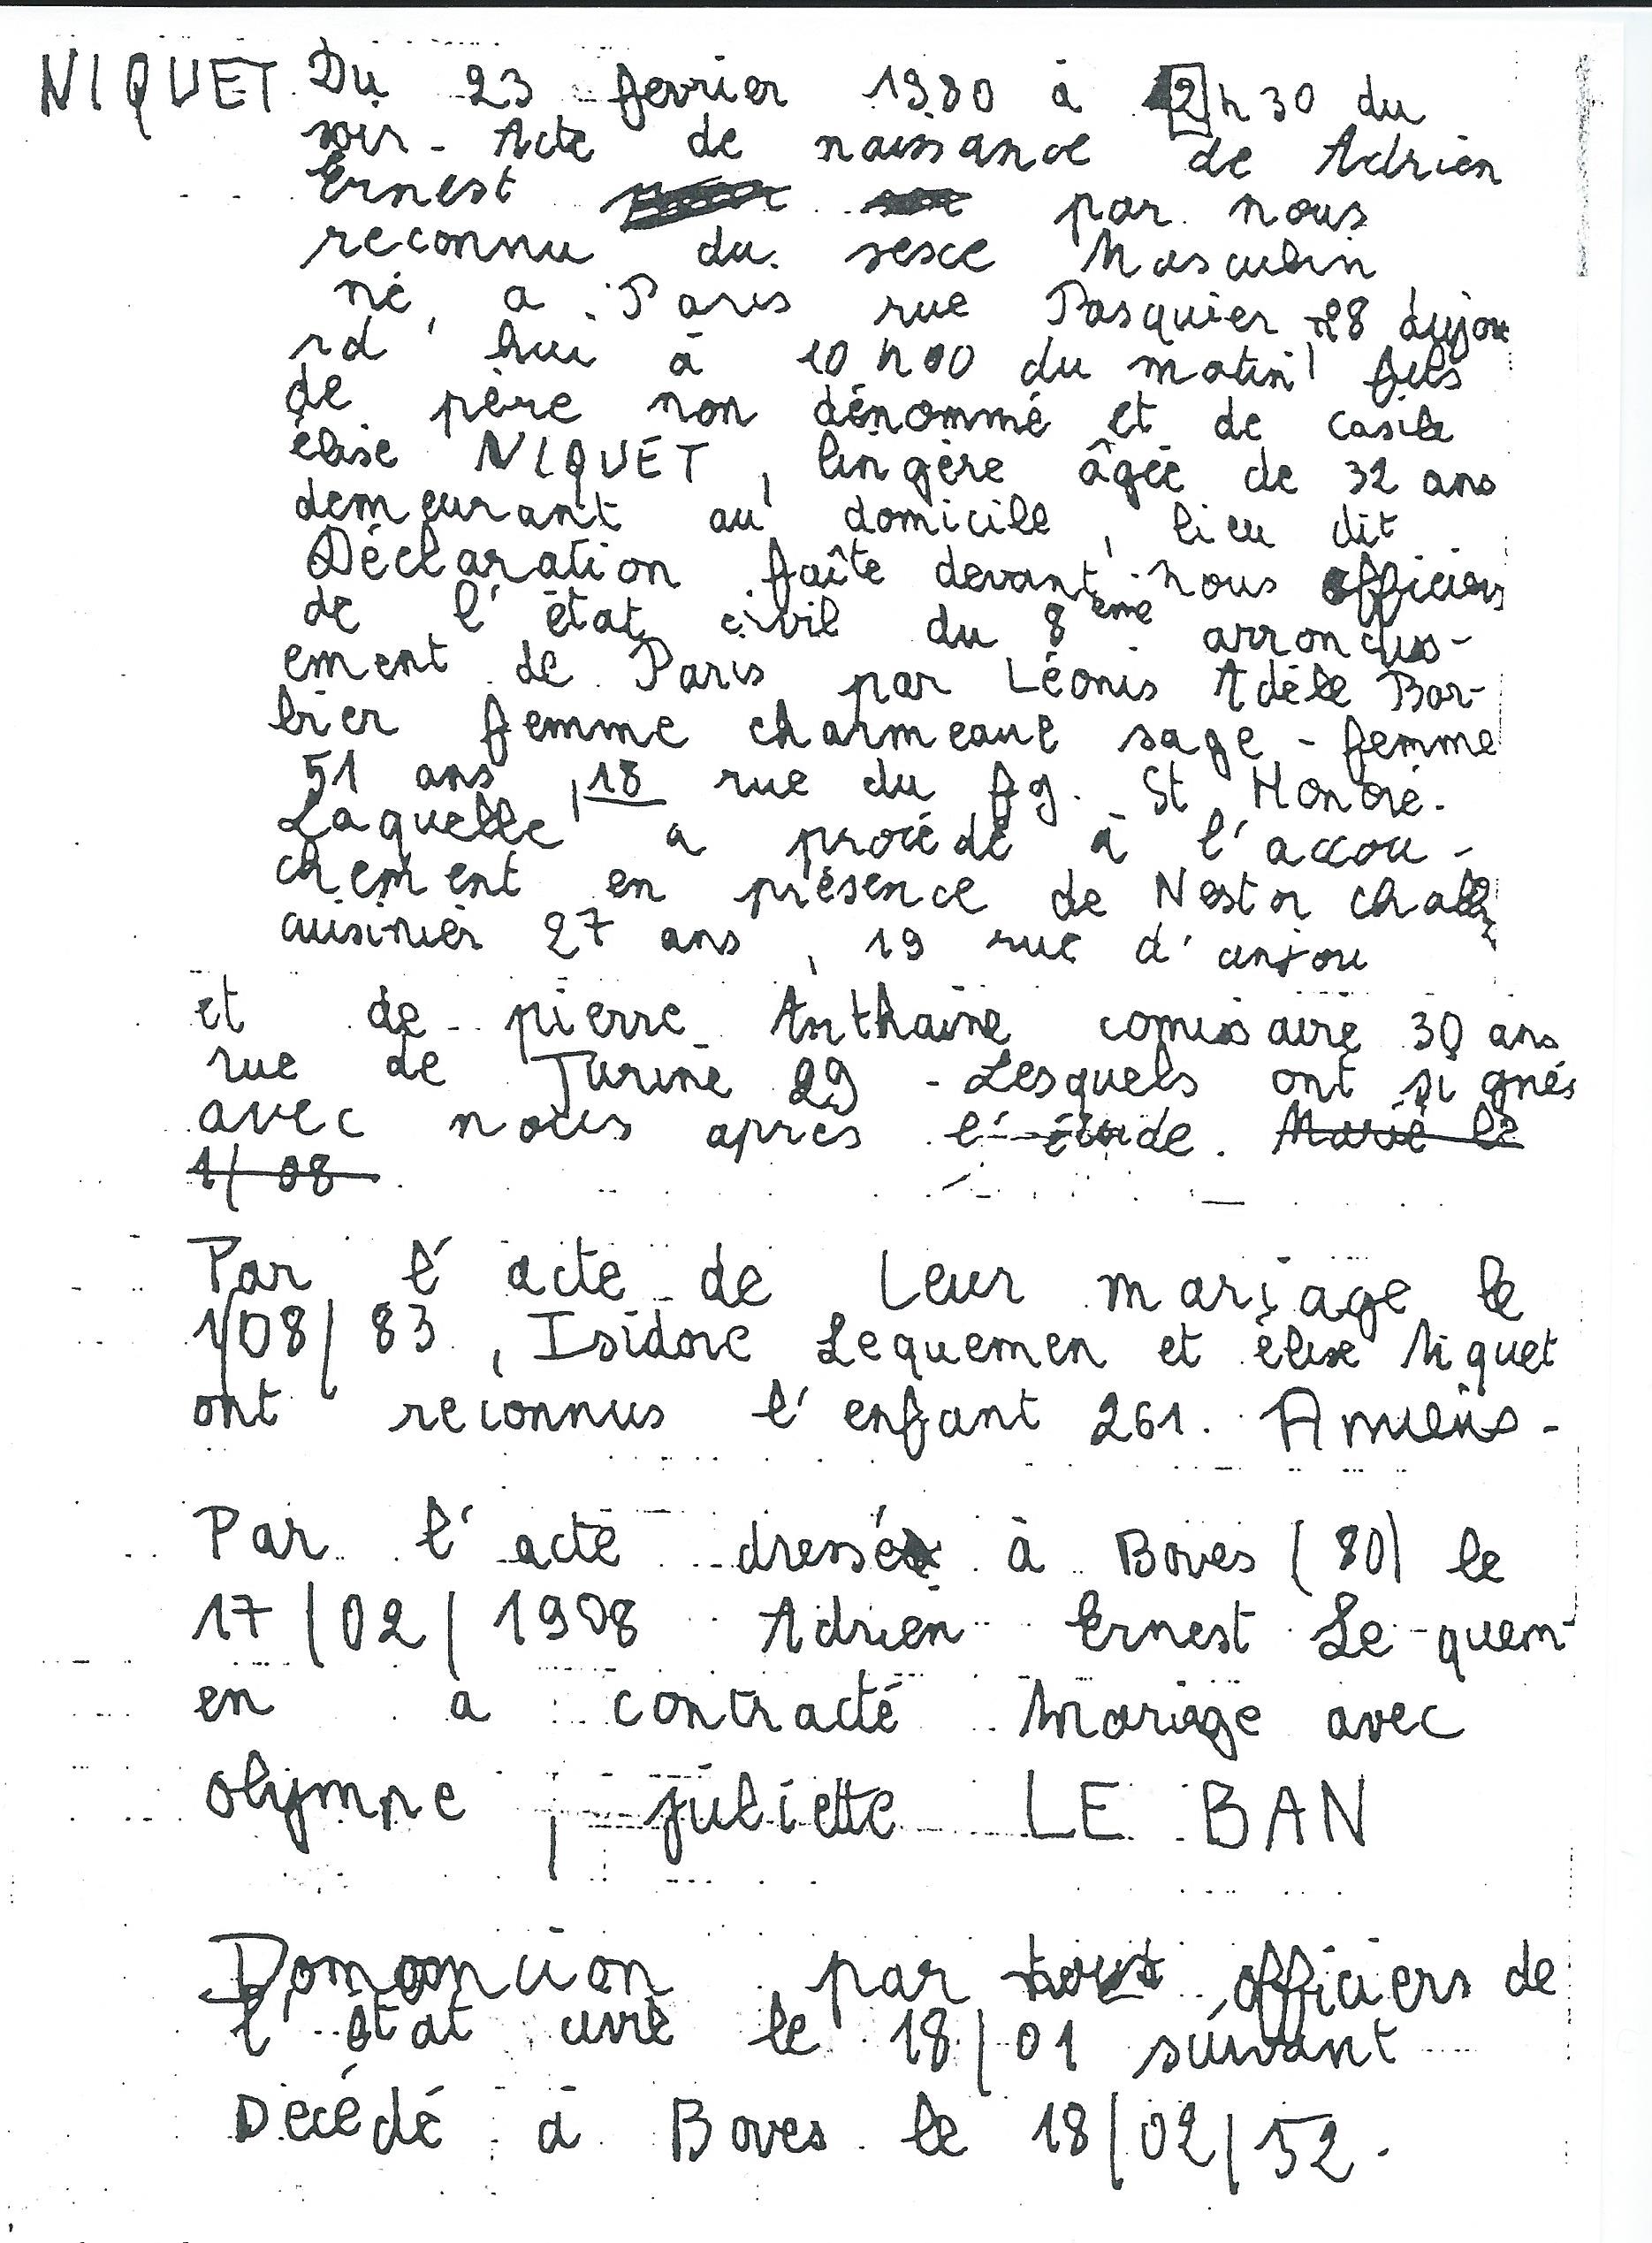 NIQUET Du 23 fevrier 1980 à 2h30 du
soir - Acte de naissance de Adrien
Ernest par nous
reconnu du sexe Masculin
né, a Paris rue Pasquier 28 aujou
rd'hui à 10 h00 du matin, fils
de père non dénommé et de
élise NIQUET, lingère âgée de 32 ans
demeurant au domicile, lieu dit
Déclaration faîte devant nous officiers
de l'état civil du 8ème arrondiss-
ement de Paris par Léonis Adèle Bar-
bier femme sage-femme
51 ans, 18 rue du fg. St Honoré.
Laquelle a procédé à l'accou-
chement en présence de Nestor
cuisinier 27 ans, 19 rue d'anjou
et de pierre comissaire 30 ans
rue de Turine 29 - Lesquels ont signés
avec nous après Marié le
1/08
Par l'acte de Leur mariage le
1/08/83, Isidore Lequemen et élise Niquet
ont reconnus l'enfant 261. Amiens -
Par l'acte dressé à Boves (80) le
17/02/1908 Adrien Ernest Le quem-
en a contracté Mariage avec
olympe, juliette LE BAN
par officiers de
l'état civil le 18/01 suivant
Décédé à Boves le 18/02/52.